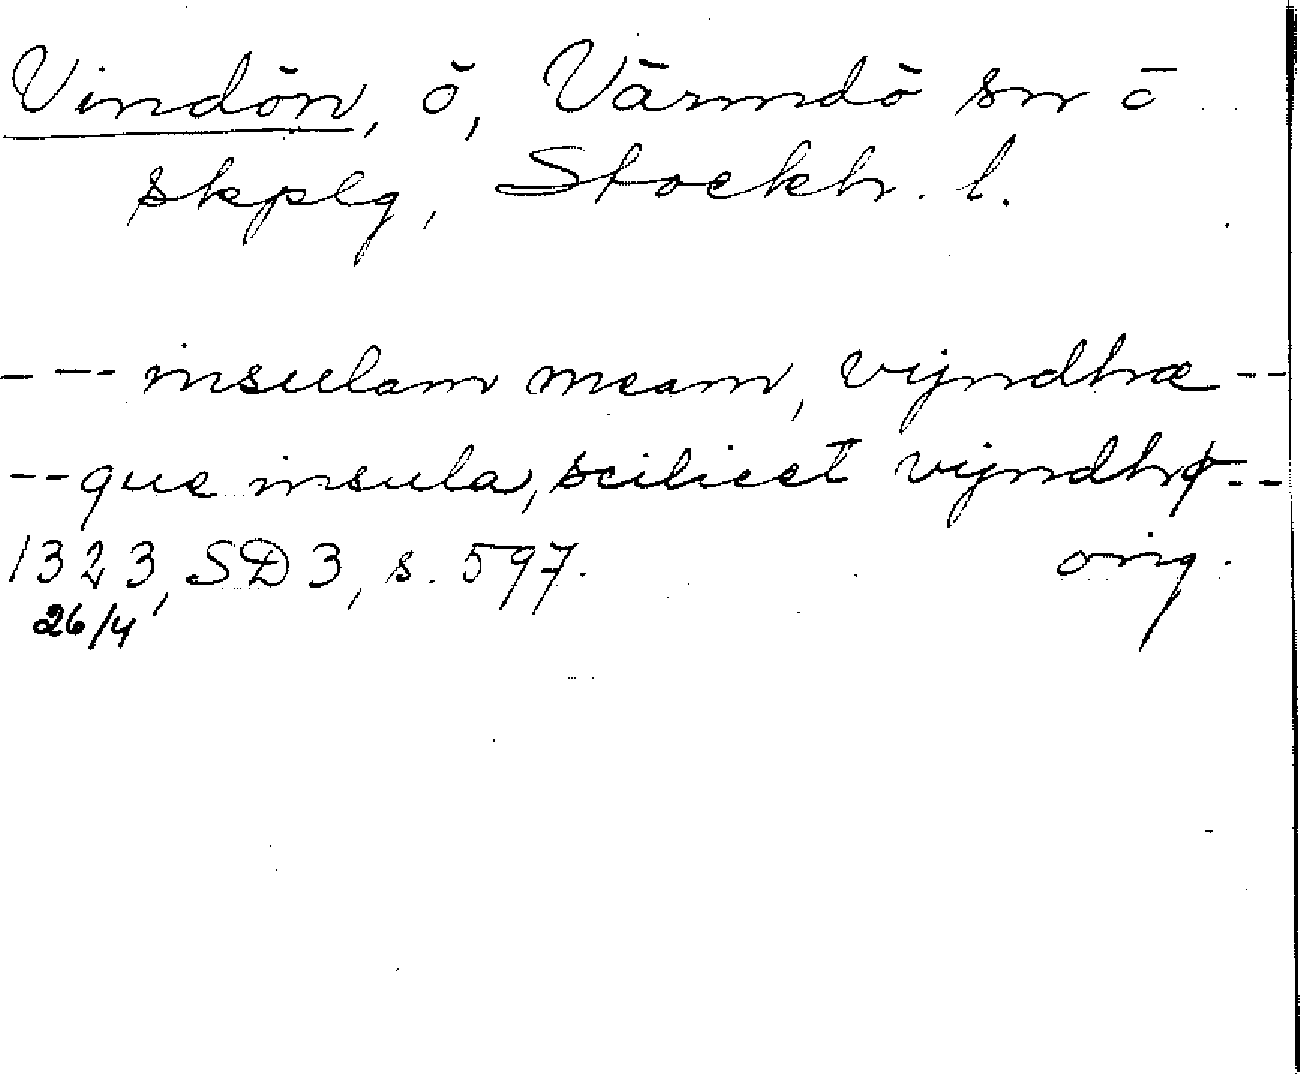 Vindön, ö, Värmdö sn o
skplg, Stockh. l.
--- insulam meam, vijndhæ --
-- que insula, scilicet vijndhø --
1323, SD 3, s. 597. orig.
26/4